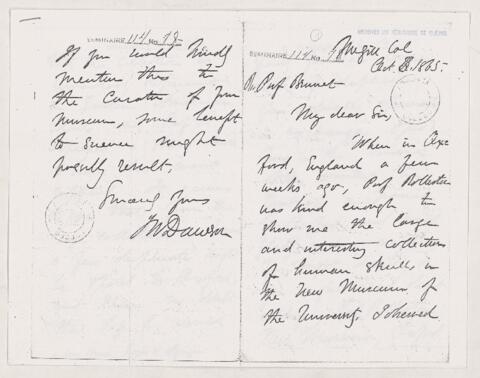 SEMINAIRE 114 No. 98
McGill Col
Oct. 1865.
Prof Brunet
My dear Sir,
When in Ox-
ford, England a few
weeks ago, Prof Rolleston
was kind enough to
show me the large
and interesting collection
of human skulls in
the New Museum of
the University. I showed
SEMINAIRE 114 No. 98
If you would kindly
mention this to
the Curator of your
Museum, some benefit
to science might
possibly result.
Sincerely yours
JWDawson